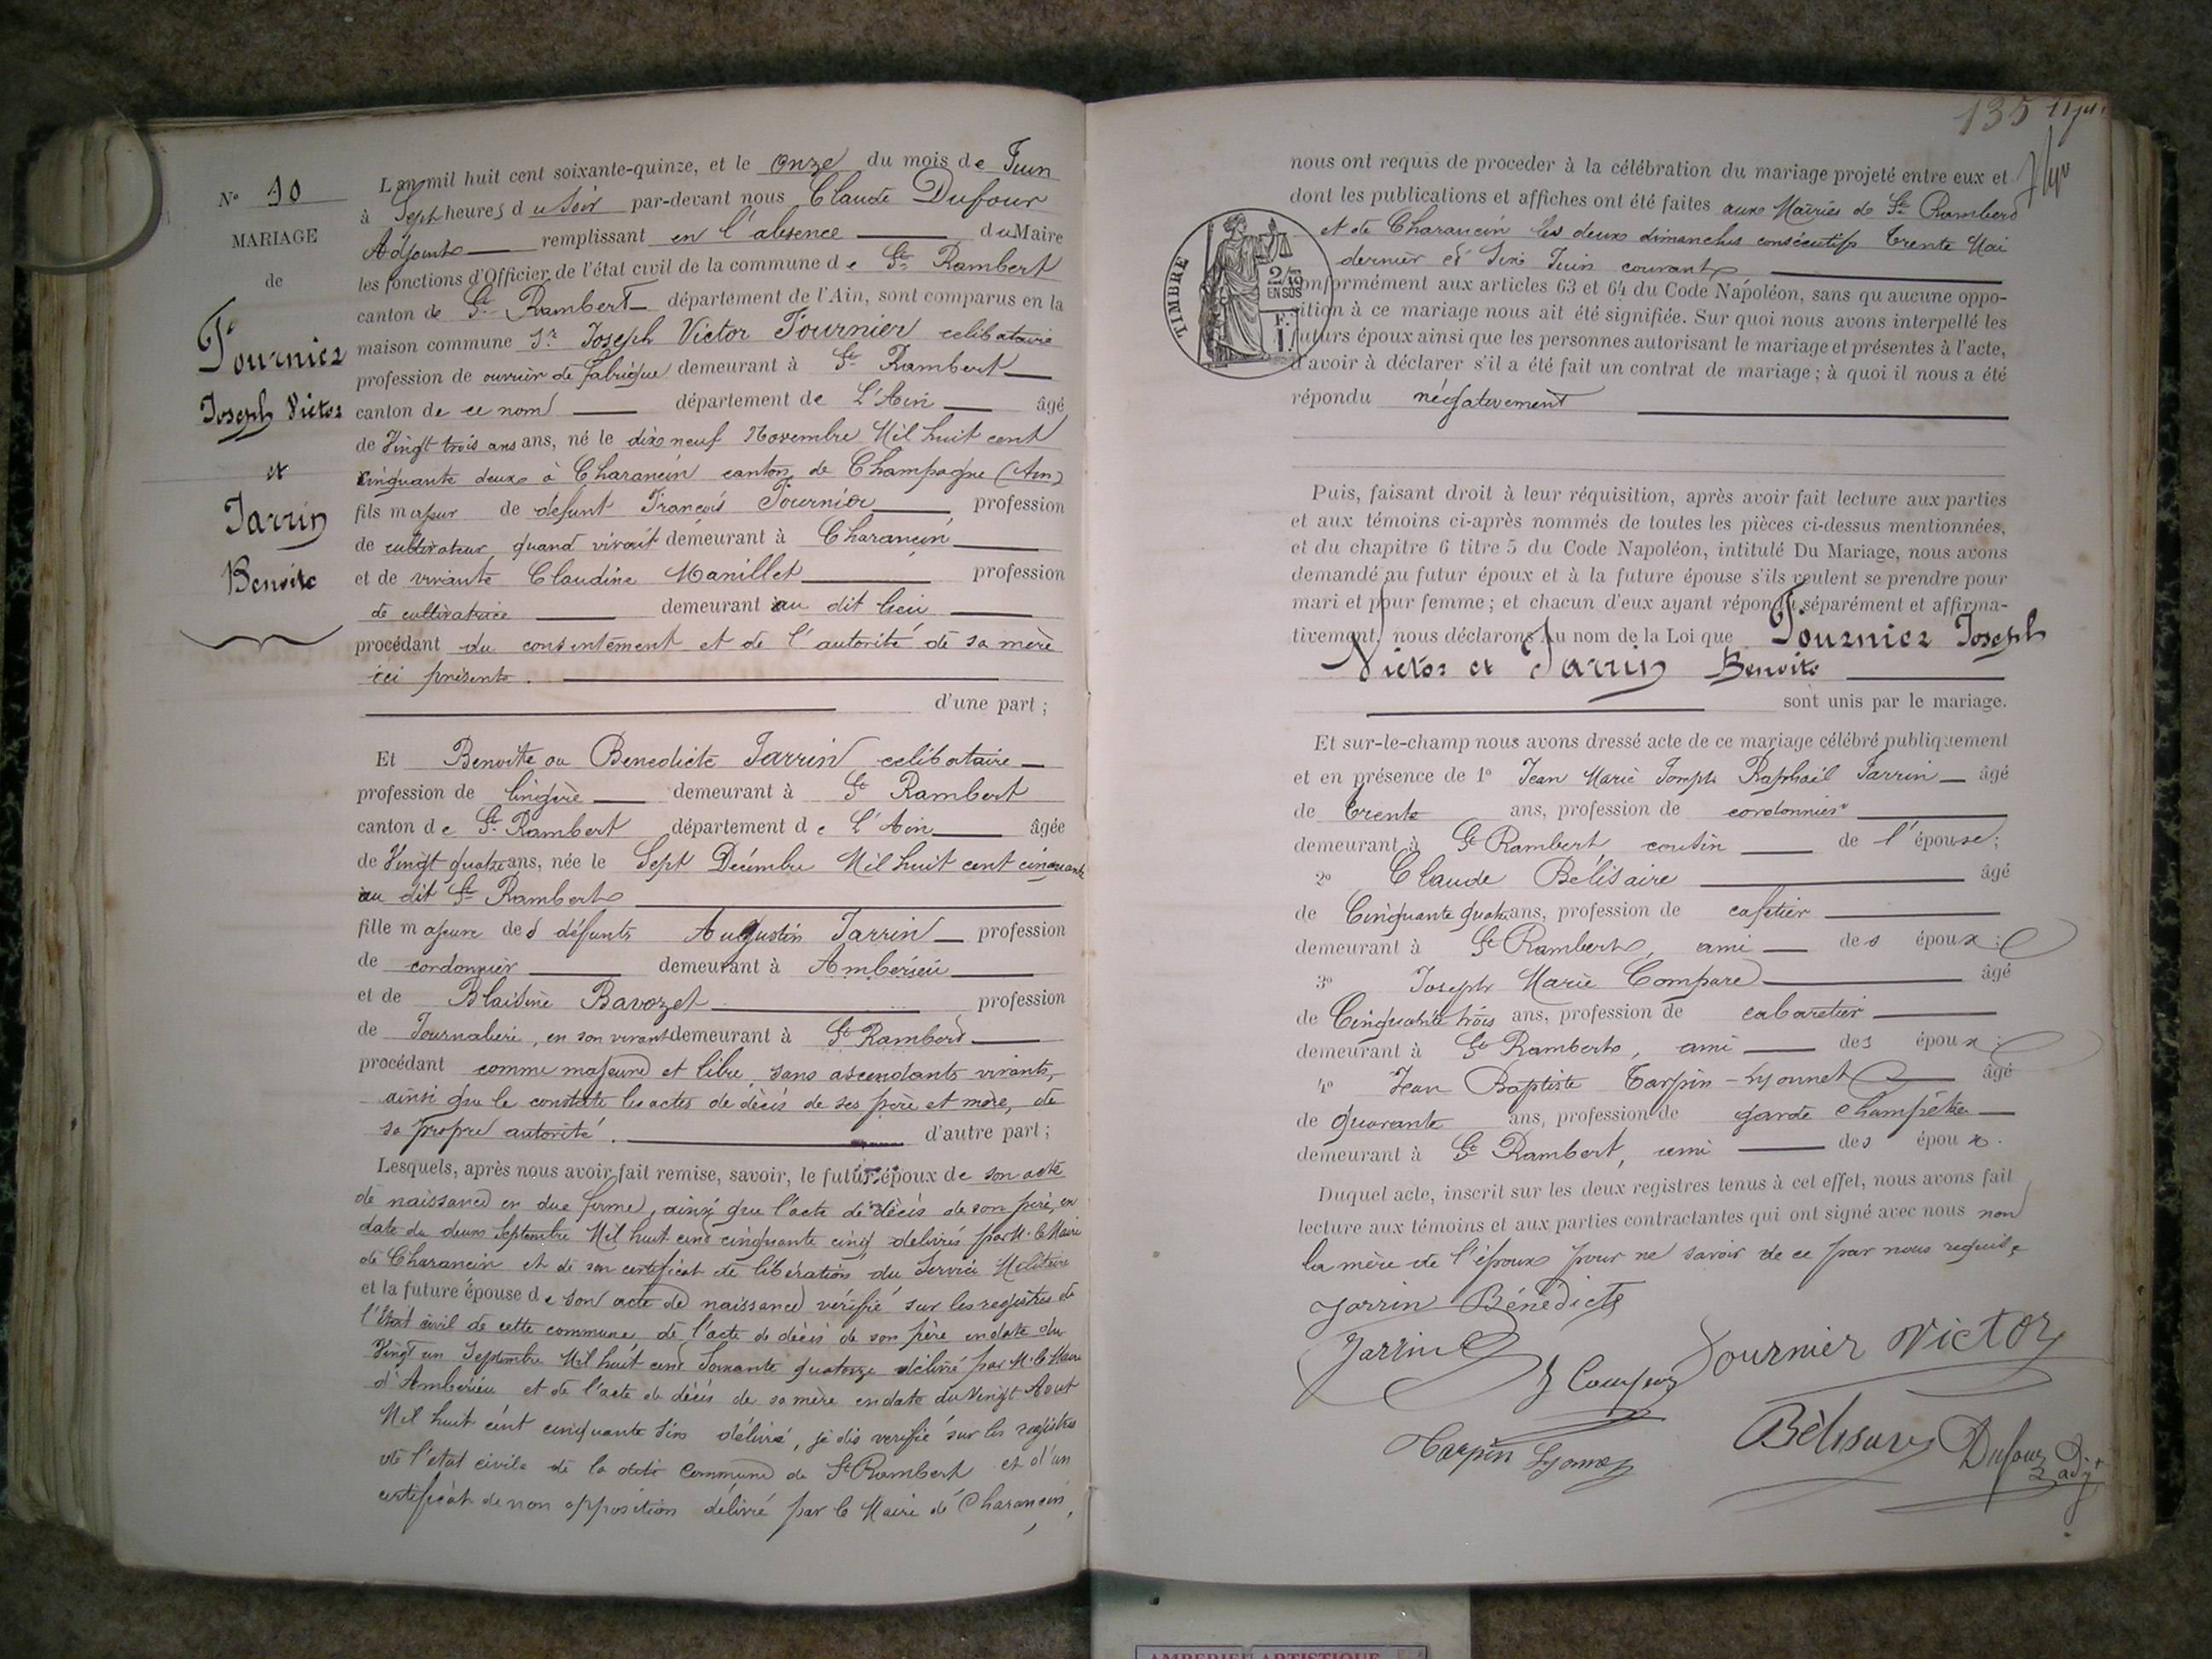 N° 10
MARIAGE
de
Fournier
Joseph Victor
et
Jarrin
Benoite
L'an mil huit cent soixante-quinze, et le onze du mois de Juin
à Sept heures du Soir par-devant nous Claude Dufour
Adjoint remplissant en l'absence du Maire
les fonctions d'Officier de l'état civil de la commune de St Rambert
canton de St Rambert département de l'Ain, sont comparus en la
maison commune Sr Joseph Victor Fournier celibataire
profession de ouvrier de fabrique demeurant à St Rambert
canton de ce nom département de L'Ain âgé
de Vingt trois ans ans, né le dix neuf Novembre Mil huit cent
cinquante deux à Charancin canton de Champagne (Ain)
fils majeur de défunt François Fournier profession
de cultivateur quand vivait demeurant à Charancin
et de vivante Claudine Manillet profession
de cultivatrice demeurant au dit lieu
procédant du consentement et de l'autorité de sa mère
ici présente.
d'une part ;
Et Benoite ou Benedicte Jarrin celibataire
profession de lingère demeurant à St Rambert
canton de St Rambert département de L'Ain âgée
de Vingt quatre ans, née le Sept Décembre Mil huit cent cinquante
au dit St Rambert
fille majeure des défunts Augustin Jarrin profession
de cordonnier demeurant à Ambérieu
et de Blaisine Bavozet profession
de Journalière, en son vivant demeurant à St Rambert
procédant comme majeure et libre, sans ascendants vivants,
ainsi que le constate les actes de décès de ses père et mère, de
sa propre autorité. d'autre part ;
Lesquels, après nous avoir fait remise, savoir, le futur époux de son acte
de naissance en due forme, ainsi que l'acte de décès de son père, en
date du deux Septembre Mil huit cent cinquante cinq délivrés par M. le Maire
de Charancin et de son certificat de libération du Service Militaire
et la future épouse de son acte de naissance vérifié sur les registres de
l'état civil de cette commune, de l'acte de décès de son père en date du
Vingt un Septembre Mil huit cent Soixante quatorze délivré par M. le Maire
d'Ambérieu et de l'acte de décès de sa mère en date du Vingt Aout
Mil huit cent cinquante six délivré, je dis verifié sur les registres
de l'état civile de la dite Commune de St Rambert et d'un
certificat de non opposition délivré par le Maire de Charancin,
135
nous ont requis de proceder à la célébration du mariage projeté entre eux et
dont les publications et affiches ont été faites aux Mairies de St Rambert
et de Charancin les deux dimanches consécutifs trente Mai
dernier et Six Juin courant
TIMBRE
2/10
EN SUS
F.
1.
conformément aux articles 63 et 64 du Code Napoléon, sans qu'aucune oppo-
sition à ce mariage nous ait été signifiée. Sur quoi nous avons interpellé les
futurs époux ainsi que les personnes autorisant le mariage et présentes à l'acte,
d'avoir à déclarer s'il a été fait un contrat de mariage ; à quoi il nous a été
répondu négativement
Puis, faisant droit à leur réquisition, après avoir fait lecture aux parties
et aux témoins ci-après nommés de toutes les pièces ci-dessus mentionnées,
et du chapitre 6 titre 5 du Code Napoléon, intitulé Du Mariage, nous avons
demandé au futur époux et à la future épouse s'ils veulent se prendre pour
mari et pour femme ; et chacun d'eux ayant répondu séparément et affirma-
tivement, nous déclarons au nom de la Loi que Fournier Joseph
Victor et Jarrin Benoite
sont unis par le mariage.
Et sur-le-champ nous avons dressé acte de ce mariage célébré publiquement
et en présence de 1° Jean Marie Joseph Raphaël Jarrin âgé
de trente ans, profession de cordonnier
demeurant à St Rambert cousin de l'épouse ;
2° Claude Bélisaire âgé
de Cinquante quatre ans, profession de cafetier
demeurant à St Rambert, ami des époux ;
3° Joseph Marie Compare âgé
de Cinquante trois ans, profession de cabaretier
demeurant à St Rambert, ami des époux ;
4° Jean Baptiste Carpin-Lyonnet âgé
de quarante ans, profession de garde champêtre
demeurant à St Rambert, ami des époux.
Duquel acte, inscrit sur les deux registres tenus à cet effet, nous avons fait
lecture aux témoins et aux parties contractantes qui ont signé avec nous non
la mère de l'époux pour ne savoir de ce par nous requise
Jarrin Bénédicte
Jarrin
Fournier Victor
Carpin Lyonnet
Bélisaire
Dufour adjt
AMBERIEU ARTISTIQUE